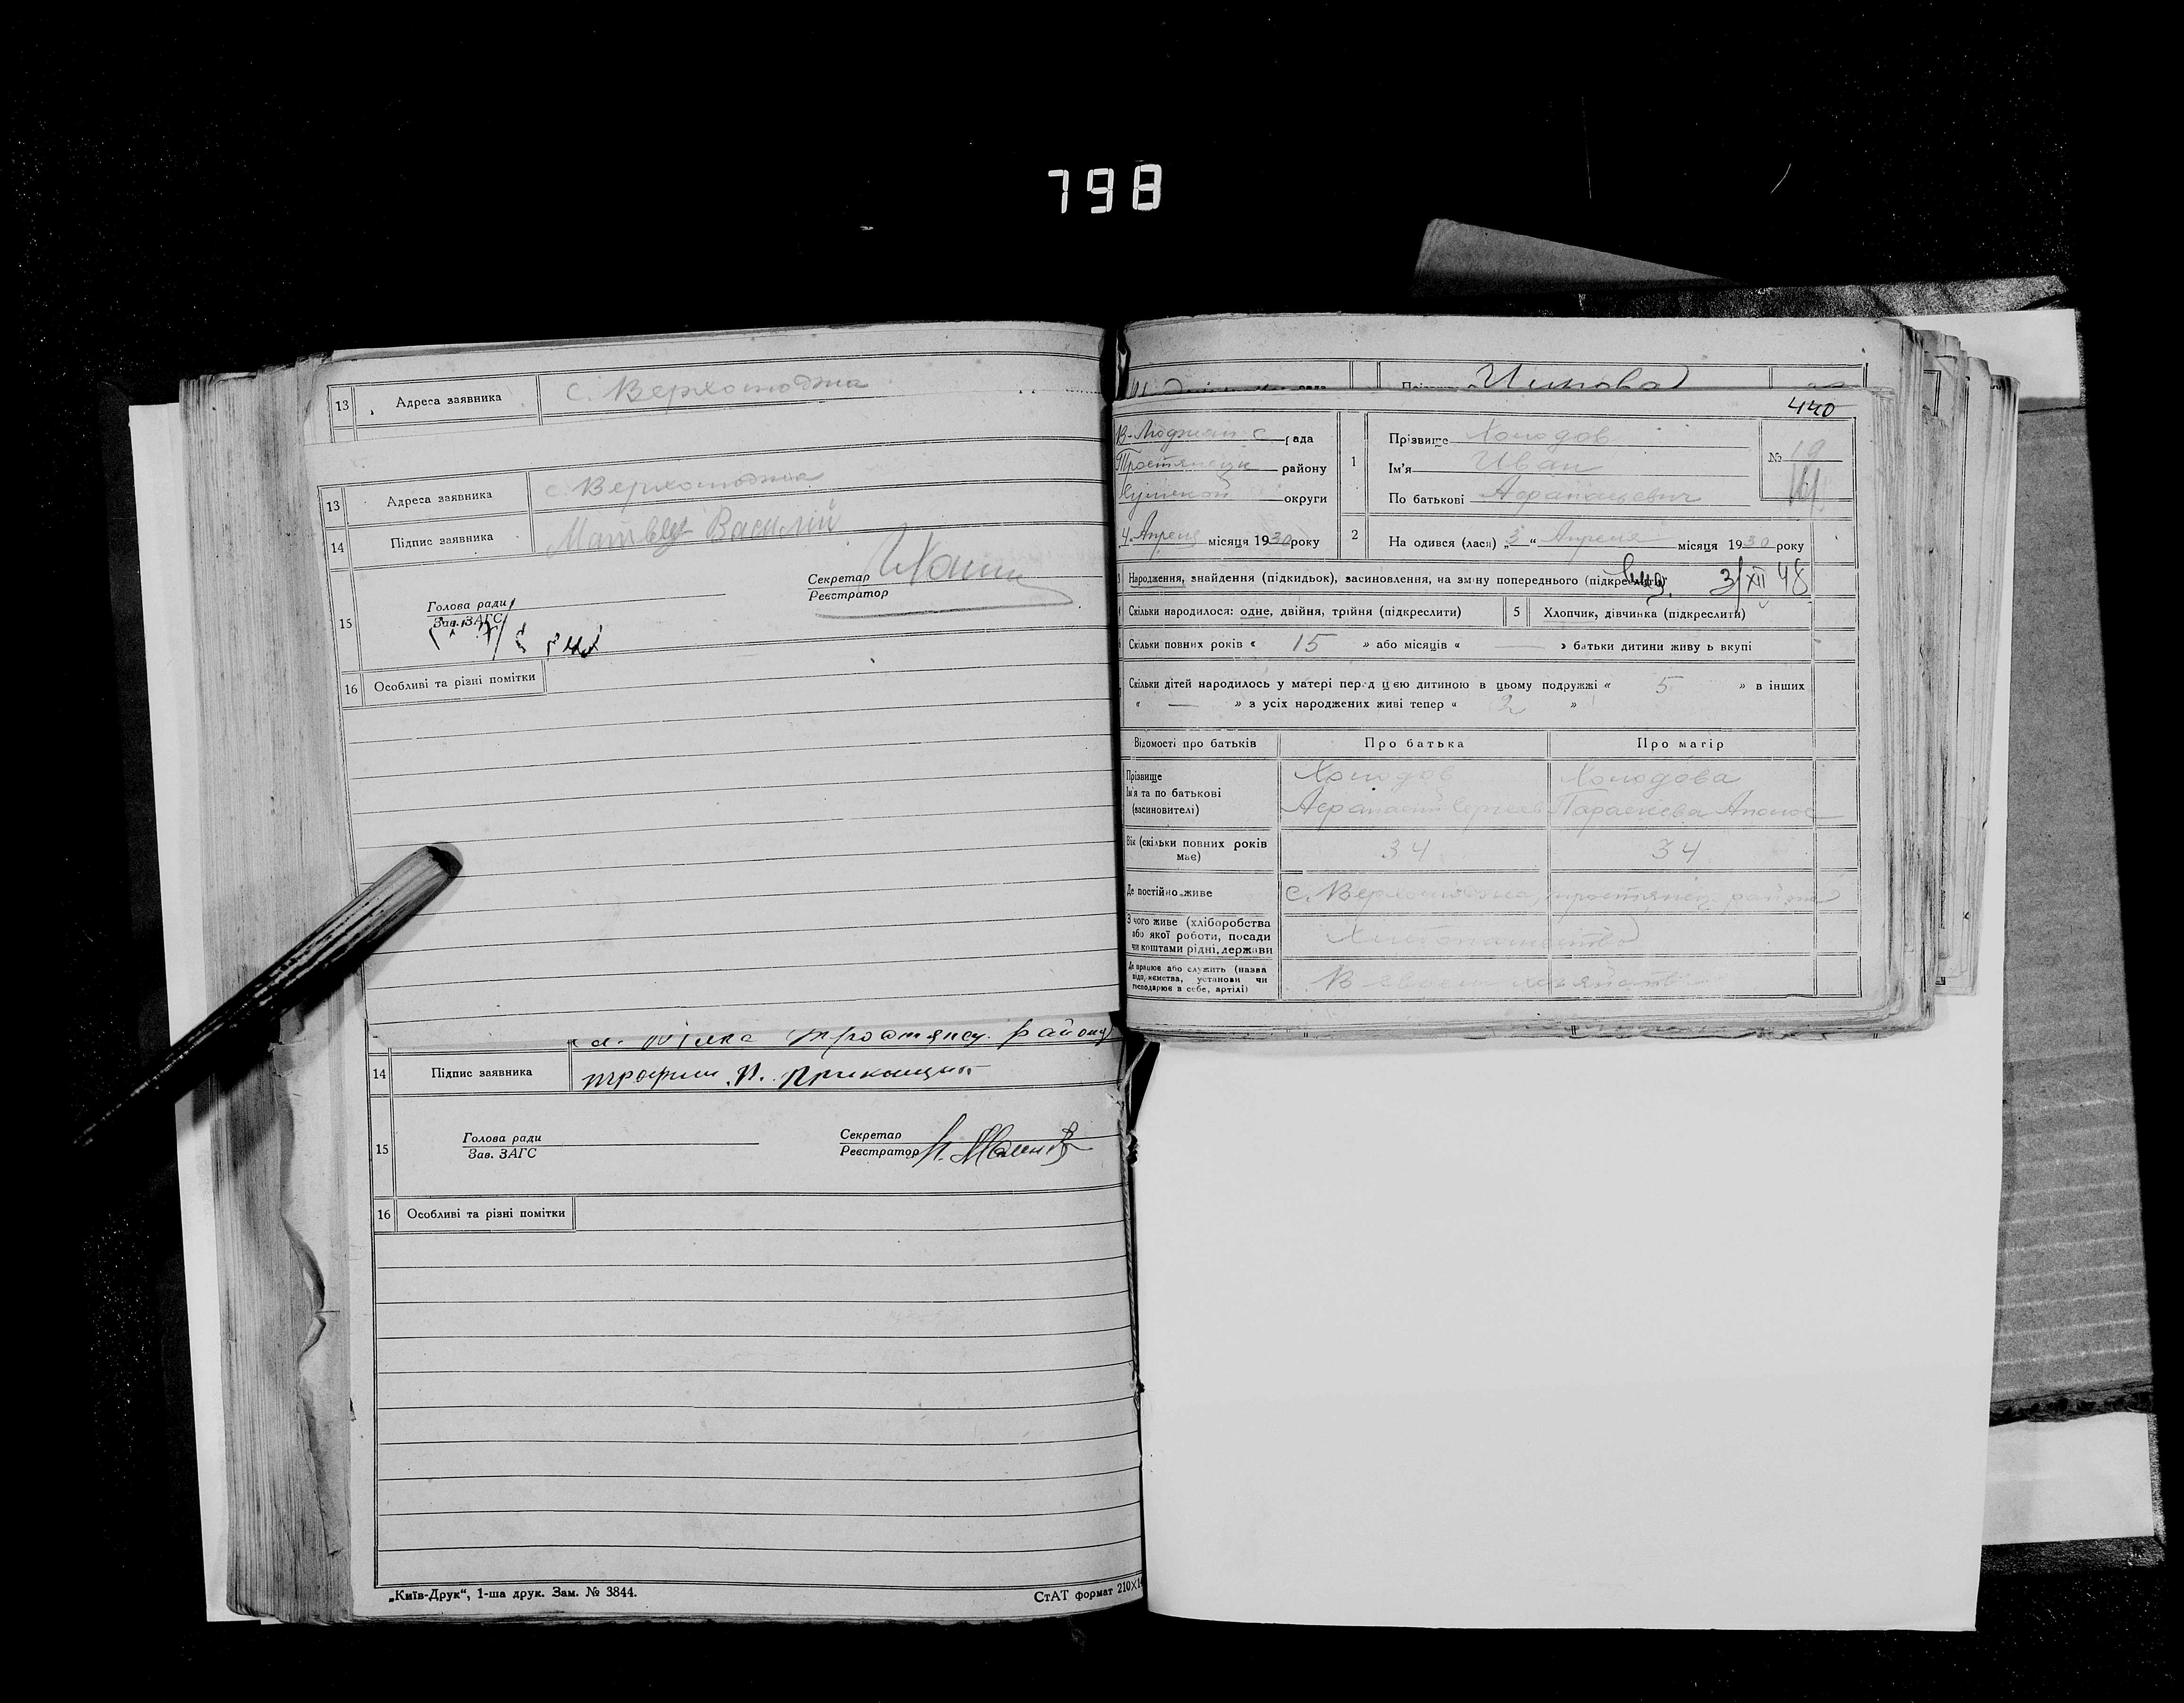 798
13 Адреса заявника с. Верхолюджа
13 Адреса заявника с. Верхолюджа
14 Підпис заявника Матвей Василий
15 Голова ради
Зав. ЗАГС
Секретар
Реєстратор
16 Особливі та різні помітки
Тростянец. району
14 Підпис заявника
15 Голова ради
Зав. ЗАГС
Секретар
Реєстратор
16 Особливі та різні помітки
„Київ-Друк“, 1-ша друк. Зам. № 3844.
СтАТ формат 210×14
440
В-Люджан с рада
Тростянецк району
Сумской округи
4 Апреля місяця 1930 року
1 Прізвище Холодов
Ім'я Иван
По батькові Афанасиевич
№ 19
2 На одився (лася) „3“ Апреля місяця 1930 року
Народження, знайдення (підкидьок), засиновлення, на зміну попереднього (підкреслити)
3/XII 48
Скільки народилося: одне, двійня, трійня (підкреслити)
5 Хлопчик, дівчинка (підкреслити)
Скільки повних років « 15 » або місяців « — » батьки дитини живу ь вкупі
Скільки дітей народилось у матері перед цією дитиною в цьому подружжі « 5 » в інших
« — » з усіх народжених живі тепер « 2 »
Відомості про батьків Про батька Про матір
Прізвище Холодов Холодова
Ім'я та по батькові
(засиновителі) Афанасий Сергеев Параскева
Вік (скільки повних років
має) 34 34
Де постійно живе с. Верхолюджа, тростянец. района
З чого живе (хліборобства
або якої роботи, посади
чи коштами рідні, держави
Хлебопашество
Де працює або служить (назва
підприємства, установи чи
господарює в себе, артілі)
В своем хозяйстве